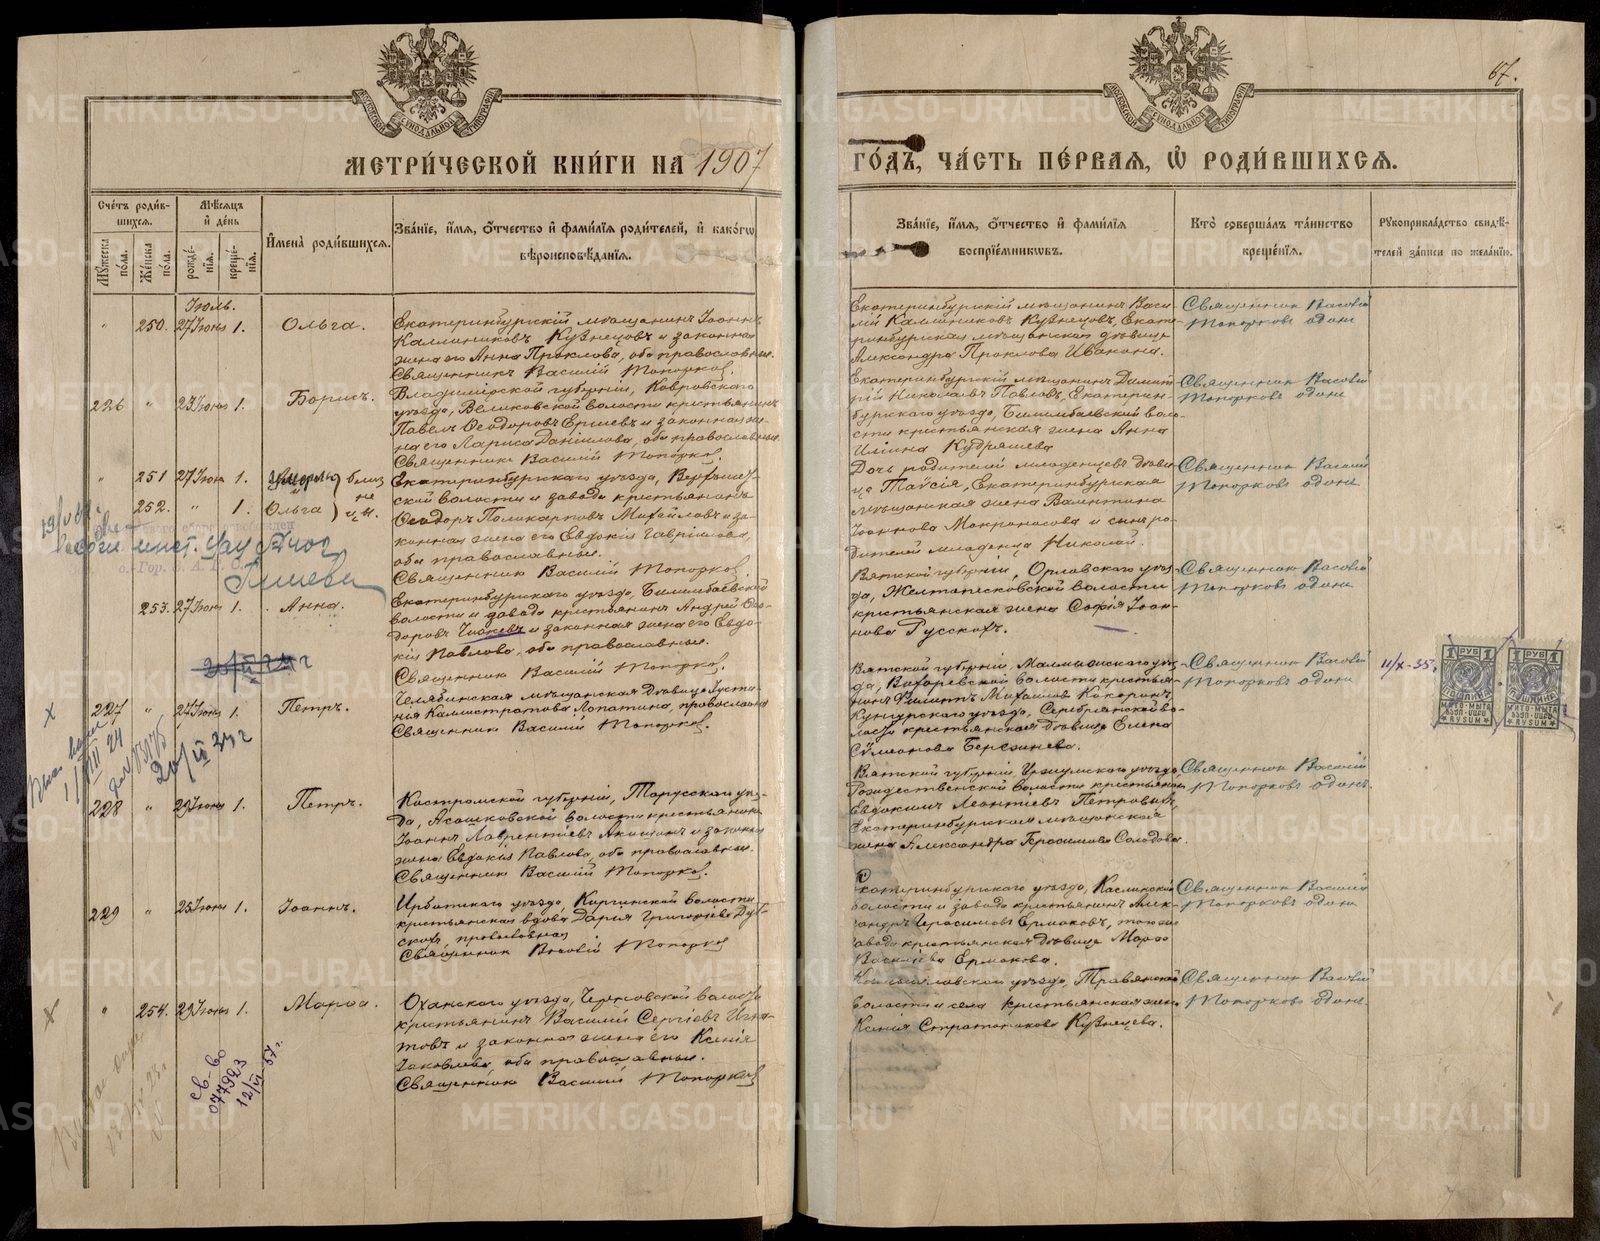 67.
МЕТРИ́ЧЕСКОЙ КНИ́ГИ НА 1907
ГО́ДЪ, ЧА́СТЬ ПЕ́РВАЯ, Ѡ҆ РОДИ́ВШИХСЯ.
Сче́тъ роди́в-
шихся.
Му́жеска по́ла.
Же́нска по́ла.
Мѣ́сяцъ
и҆ де́нь
рожде́-
нїя.
креще́-
нїя.
И҆мена̀ роди́вшихся.
Зва́нїе, и҆́мя, ѻ҆́тчество и҆ фами́лїя роди́телей, и҆ како́гѡ
вѣроисповѣ́данїя.
Зва́нїе, и҆́мя, ѻ҆́тчество и҆ фами́лїя
воспрїе́мниковъ.
Кто̀ соверша́лъ та́инство
креще́нїя.
Рукоприкла́дство свидѣ́-
телей за́писи по жела́нїю.
Іюль.
" 250. 27 Іюня 1. Ольга.
Екатеринбургскій мѣщанинъ Іоаннъ
Каллиниковъ Кузнецовъ и законная
жена его Анна Проклова, оба православные.
Священникъ Василій Топорковъ.
Екатеринбургскій мѣщанинъ Васи-
лій Каллиниковъ Кузнецовъ, Екате-
ринбургская мѣщанская дѣвица
Александра Проклова Ивакина.
Священникъ Василій
Топорковъ одинъ
226 " 23 Іюня 1. Борисъ.
Владимірской губерніи, Ковровскаго
уѣзда, Великовской волости крестьянинъ
Павелъ Ѳеодоровъ Ершевъ и законная же-
на его Лариса Даніилова, оба православные.
Священникъ Василій Топорковъ.
Екатеринбургскій мѣщанинъ Димит-
рій Николаевъ Павловъ, Екатерин-
бургскаго уѣзда, Билимбаевской воло-
сти крестьянская жена Анна
Ильина Кудряшева
Священникъ Василій
Топорковъ одинъ
" 251 27 Іюня 1.
252. " 1. Ольга
близ
не
цы.
Екатеринбургскаго уѣзда, Верхисет-
ской волости и завода крестьянинъ
Ѳеодоръ Поликарповъ Михайловъ и за-
конная жена его Евдокія Гавріилова,
оба православные.
Священникъ Василій Топорковъ
Дочь родителей младенцевъ дѣви-
ца Таисія, Екатеринбургская
мѣщанская жена Валентина
Іоаннова Мокроносова и сынъ ро-
дителей младенца Николай.
Священникъ Василій
Топорковъ одинъ
253. 27 Іюня 1. Анна.
Екатеринбургскаго уѣзда, Билимбаевской
волости и завода крестьянинъ Андрей Ѳео-
доровъ и законная жена его Евдо-
кія Павлова, оба православные.
Священникъ Василій Топорковъ.
Вятской губерніи, Орловскаго уѣз-
да, волости
крестьянская жена Софія Іоан-
нова Русскихъ.
Священникъ Василій
Топорковъ одинъ
227 " 27 Іюня 1. Петръ.
Челябинская мѣщанская дѣвица Іуста-
Каллистратова Лопатина, православная
Священникъ Василій Топорковъ.
Вятской губерніи, Малмыжскаго уѣз-
да, волости крестья-
нинъ Филиппъ Михаиловъ Кокоринъ,
Кунгурскаго уѣзда, Серебрянской во-
лости крестьянская дѣвица Елена
Сѵмеонова Березинева.
Священникъ Василій
Топорковъ одинъ
11/X-35.
1 РУБ 1
1 РУБ 1
20/VI 24 г
228 " 29 Іюня 1. Петръ.
Костромской губерніи,
волости крестьянинъ
Іоаннъ Лаврентіевъ и законная
жена Евдокія Павлова, оба православные.
Священникъ Василій Топорковъ.
Вятской губерніи Уржумскаго уѣзда,
Рождественской волости крестьянинъ
Евдокимъ Леонтіевъ Петровыхъ,
Екатеринбургская мѣщанская
жена Александра Герасимова Солодова.
Священникъ Василій
Топорковъ одинъ.
229 " 25 Іюня 1. Іоаннъ.
Ирбитскаго уѣзда, Киргинской волости
крестьянская вдова Дарья Григорьева Дуб-
скихъ, православная
Священникъ Василій Топорковъ
Екатеринбургскаго уѣзда, Каслинской
волости и завода крестьянинъ Алек-
сандръ Герасимовъ Ермаковъ, того же
завода крестьянская дѣвица Марѳа
Василіева Ермакова.
Священникъ Василій
Топорковъ одинъ
" 254. 29 Іюня 1. Марѳа.
Оханскаго уѣзда, Черновской волости
крестьянинъ Василій Сергіевъ Игна-
товъ и законная жена его Ксенія
Іаковлева, оба православные.
Священникъ Василій Топорковъ
Камышловскаго уѣзда, Травянской
волости и села крестьянская жена
Ксенія Стратоникова Кузнецова.
Священникъ Василій
Топорковъ одинъ.
св-во
077923
12/VI-57 г.
METRIKI.GASO-URAL.RU